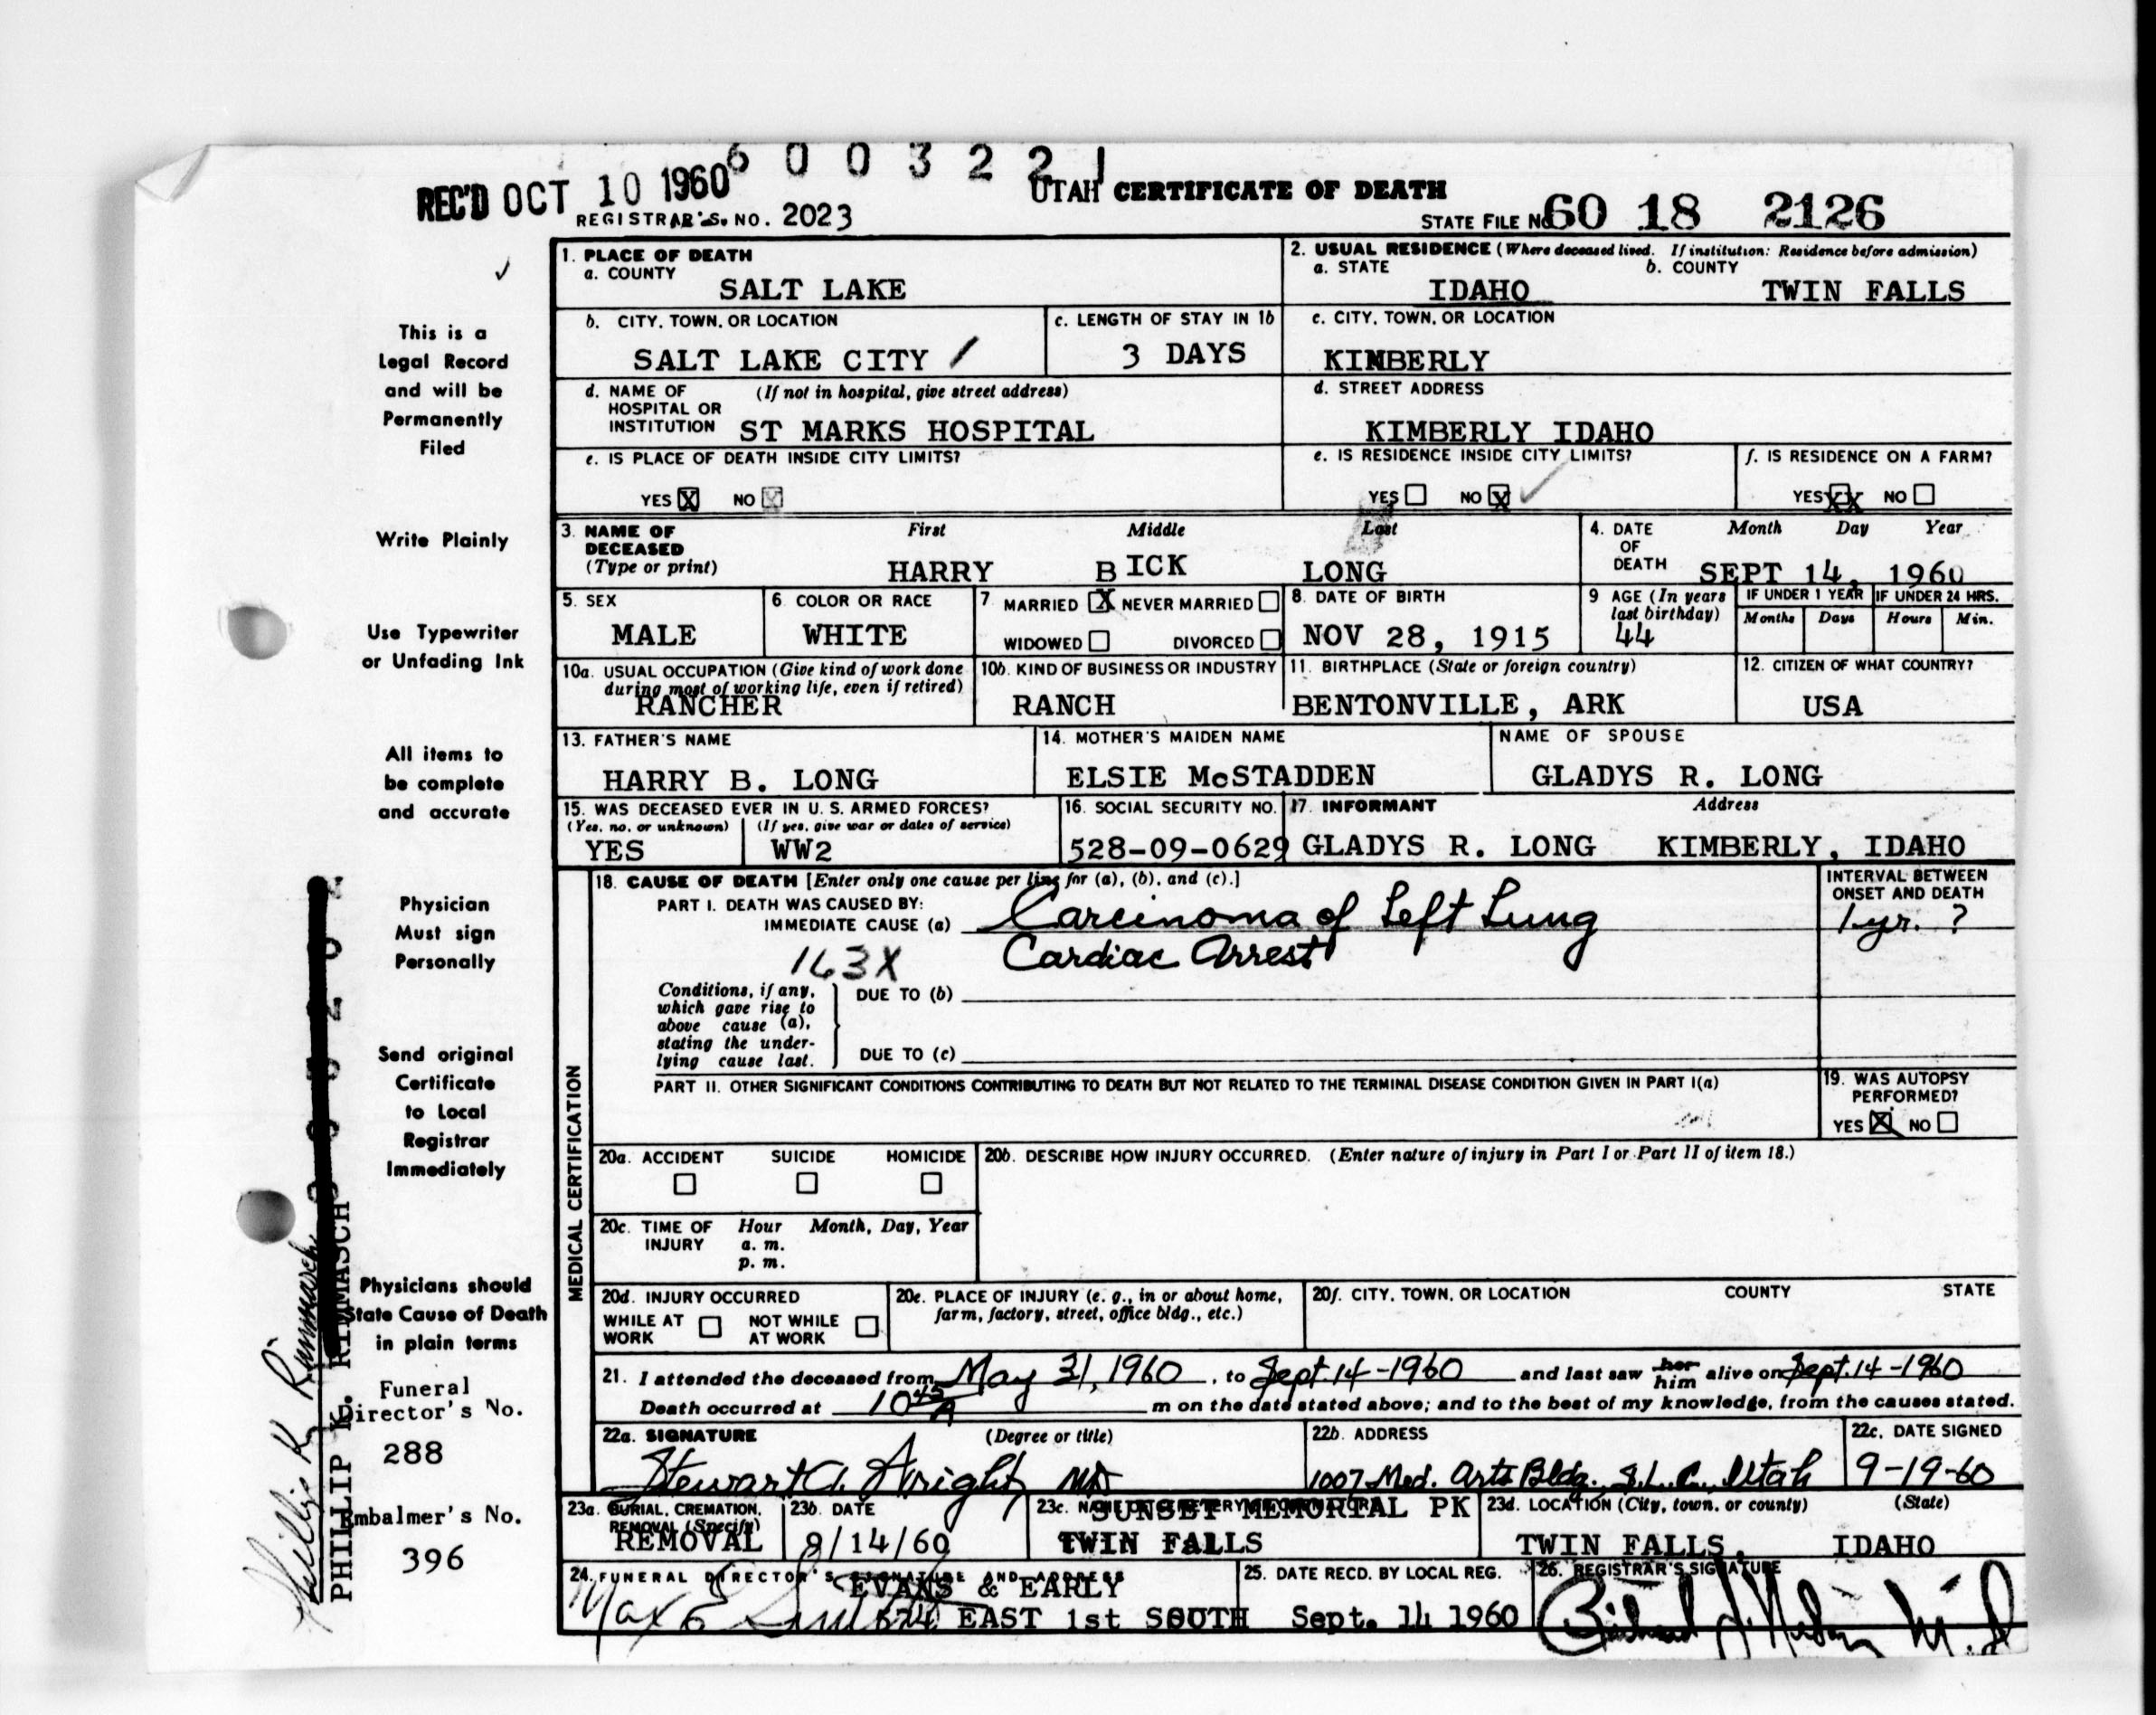 6 0 0 3 2 2 1
REC'D OCT 10 1960
UTAH CERTIFICATE OF DEATH
REGISTRAR'S NO. 2023
STATE FILE NO. 60 18 2126
This is a
Legal Record
and will be
Permanently
Filed
Write Plainly
Use Typewriter
or Unfading Ink
All items to
be complete
and accurate
Physician
Must sign
Personally
Send original
Certificate
to Local
Registrar
Immediately
Physicians should
State Cause of Death
in plain terms
Funeral
Director's No.
288
Embalmer's No.
396
PHILLIP K. RIMMASCH
1. PLACE OF DEATH
a. COUNTY
SALT LAKE
2. USUAL RESIDENCE (Where deceased lived. If institution: Residence before admission)
a. STATE b. COUNTY
IDAHO TWIN FALLS
b. CITY, TOWN, OR LOCATION
SALT LAKE CITY /
c. LENGTH OF STAY IN 1b
3 DAYS
c. CITY, TOWN, OR LOCATION
KIMBERLY
d. NAME OF (If not in hospital, give street address)
HOSPITAL OR
INSTITUTION ST MARKS HOSPITAL
d. STREET ADDRESS
KIMBERLY IDAHO
e. IS PLACE OF DEATH INSIDE CITY LIMITS?
YES X NO X
e. IS RESIDENCE INSIDE CITY LIMITS?
YES NO X
f. IS RESIDENCE ON A FARM?
YES XX NO
3. NAME OF First Middle Last
DECEASED
(Type or print) HARRY BICK LONG
4. DATE Month Day Year
OF
DEATH SEPT 14, 1960
5. SEX
MALE
6. COLOR OR RACE
WHITE
7 MARRIED X NEVER MARRIED
WIDOWED DIVORCED
8. DATE OF BIRTH
NOV 28, 1915
9 AGE (In years
last birthday)
44
IF UNDER 1 YEAR IF UNDER 24 HRS.
Months Days Hours Min.
10a. USUAL OCCUPATION (Give kind of work done
during most of working life, even if retired)
RANCHER
10b. KIND OF BUSINESS OR INDUSTRY
RANCH
11. BIRTHPLACE (State or foreign country)
BENTONVILLE, ARK
12. CITIZEN OF WHAT COUNTRY?
USA
13. FATHER'S NAME
HARRY B. LONG
14. MOTHER'S MAIDEN NAME
ELSIE McSTADDEN
NAME OF SPOUSE
GLADYS R. LONG
15. WAS DECEASED EVER IN U. S. ARMED FORCES?
(Yes, no, or unknown) (If yes, give war or dates of service)
YES WW2
16. SOCIAL SECURITY NO.
528-09-0629
17. INFORMANT Address
GLADYS R. LONG KIMBERLY, IDAHO
MEDICAL CERTIFICATION
18. CAUSE OF DEATH [Enter only one cause per line for (a), (b), and (c).]
PART I. DEATH WAS CAUSED BY:
IMMEDIATE CAUSE (a) Carcinoma of Left Lung
Cardiac Arrest
163X
INTERVAL BETWEEN
ONSET AND DEATH
1 yr. ?
Conditions, if any,
which gave rise to
above cause (a),
stating the under-
lying cause last.
DUE TO (b)
DUE TO (c)
PART II. OTHER SIGNIFICANT CONDITIONS CONTRIBUTING TO DEATH BUT NOT RELATED TO THE TERMINAL DISEASE CONDITION GIVEN IN PART I(a)
19. WAS AUTOPSY
PERFORMED?
YES X NO
20a. ACCIDENT SUICIDE HOMICIDE
20b. DESCRIBE HOW INJURY OCCURRED. (Enter nature of injury in Part I or Part II of item 18.)
20c. TIME OF Hour Month, Day, Year
INJURY a. m.
p. m.
20d. INJURY OCCURRED
WHILE AT NOT WHILE
WORK AT WORK
20e. PLACE OF INJURY (e. g., in or about home,
farm, factory, street, office bldg., etc.)
20f. CITY, TOWN, OR LOCATION COUNTY STATE
21. I attended the deceased from May 31, 1960, to Sept. 14-1960 and last saw her him alive on Sept. 14-1960
Death occurred at 10 45 A m on the date stated above; and to the best of my knowledge, from the causes stated.
22a. SIGNATURE (Degree or title)
Stewart A. Wright MD
22b. ADDRESS
1007 Med. Arts Bldg., S.L.C., Utah
22c. DATE SIGNED
9-19-60
23a. BURIAL, CREMATION,
REMOVAL (Specify)
REMOVAL
23b. DATE
9/14/60
23c. NAME OF CEMETERY OR CREMATORY
SUNSET MEMORIAL PK
TWIN FALLS
23d. LOCATION (City, town, or county) (State)
TWIN FALLS, IDAHO
24. FUNERAL DIRECTOR'S SIGNATURE AND ADDRESS
EVANS & EARLY
574 EAST 1st SOUTH
25. DATE RECD. BY LOCAL REG.
Sept. 14 1960
26. REGISTRAR'S SIGNATURE